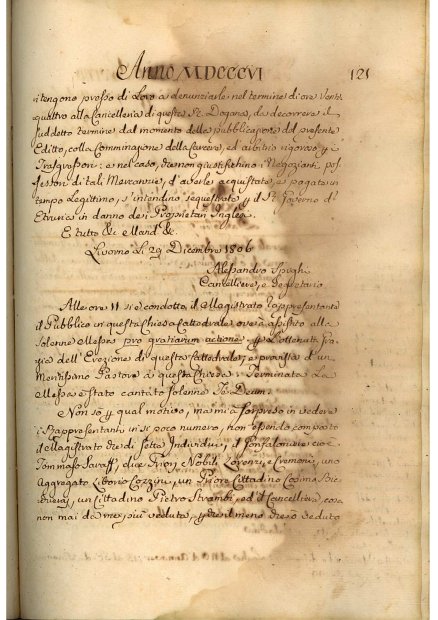 Anno MDCCCVI
121
ritengono presso di Loro a denunziarle nel termine di ore venti
quattro alla Cancelleria di questa R. Dogana, da decorrere il
suddetto termine dal momento della pubblicazione del presente
Editto, colla Comminazione della Carcere, ed arbitrio rigoroso a i
Trasgressori; e nel caso, che non giustifichino i Negozianti pos
sessori di tali Mercanzie, d'averle acquistate, e pagate in
tempo Legittimo, s'intendino sequestrate p il R. Governo d'
Etruria in danno de i Proprietari Inglesi.
E tutto &c. e Mand. &c.
Livorno Li 29 Dicembre 1806
Alessandro
Cancelliere, e Segretario
Alle ore 11 si è condotto il Magistrato rappresentante
il Pubblico in questa Chiesa Cattedrale ove à assistito alla
Solenne Messa pro gratiarum actione p L'ottenuta Gra
zia dell'Erezione di questa Cattedrale, e provista d'un
Pastore a questa Chiesa. Terminata La
Messa è stato cantato solenne Te Deum.
Non so p qual motivo, ma mi à sorpreso in vedere
i Rappresentanti in sì poco numero, non essendo composto
il Magistrato che di sette Individui, il Gonfaloniere cioè
Tommaso due Priori Nobili Lorenzi, e Cremoni, uno
Aggregato Liborio Cozzini, un Priore Cittadino Cosimo
un Cittadino Pietro Strambi, ed il Cancelliere, cosa
non mai da me più veduta, p che il meno che ò veduto